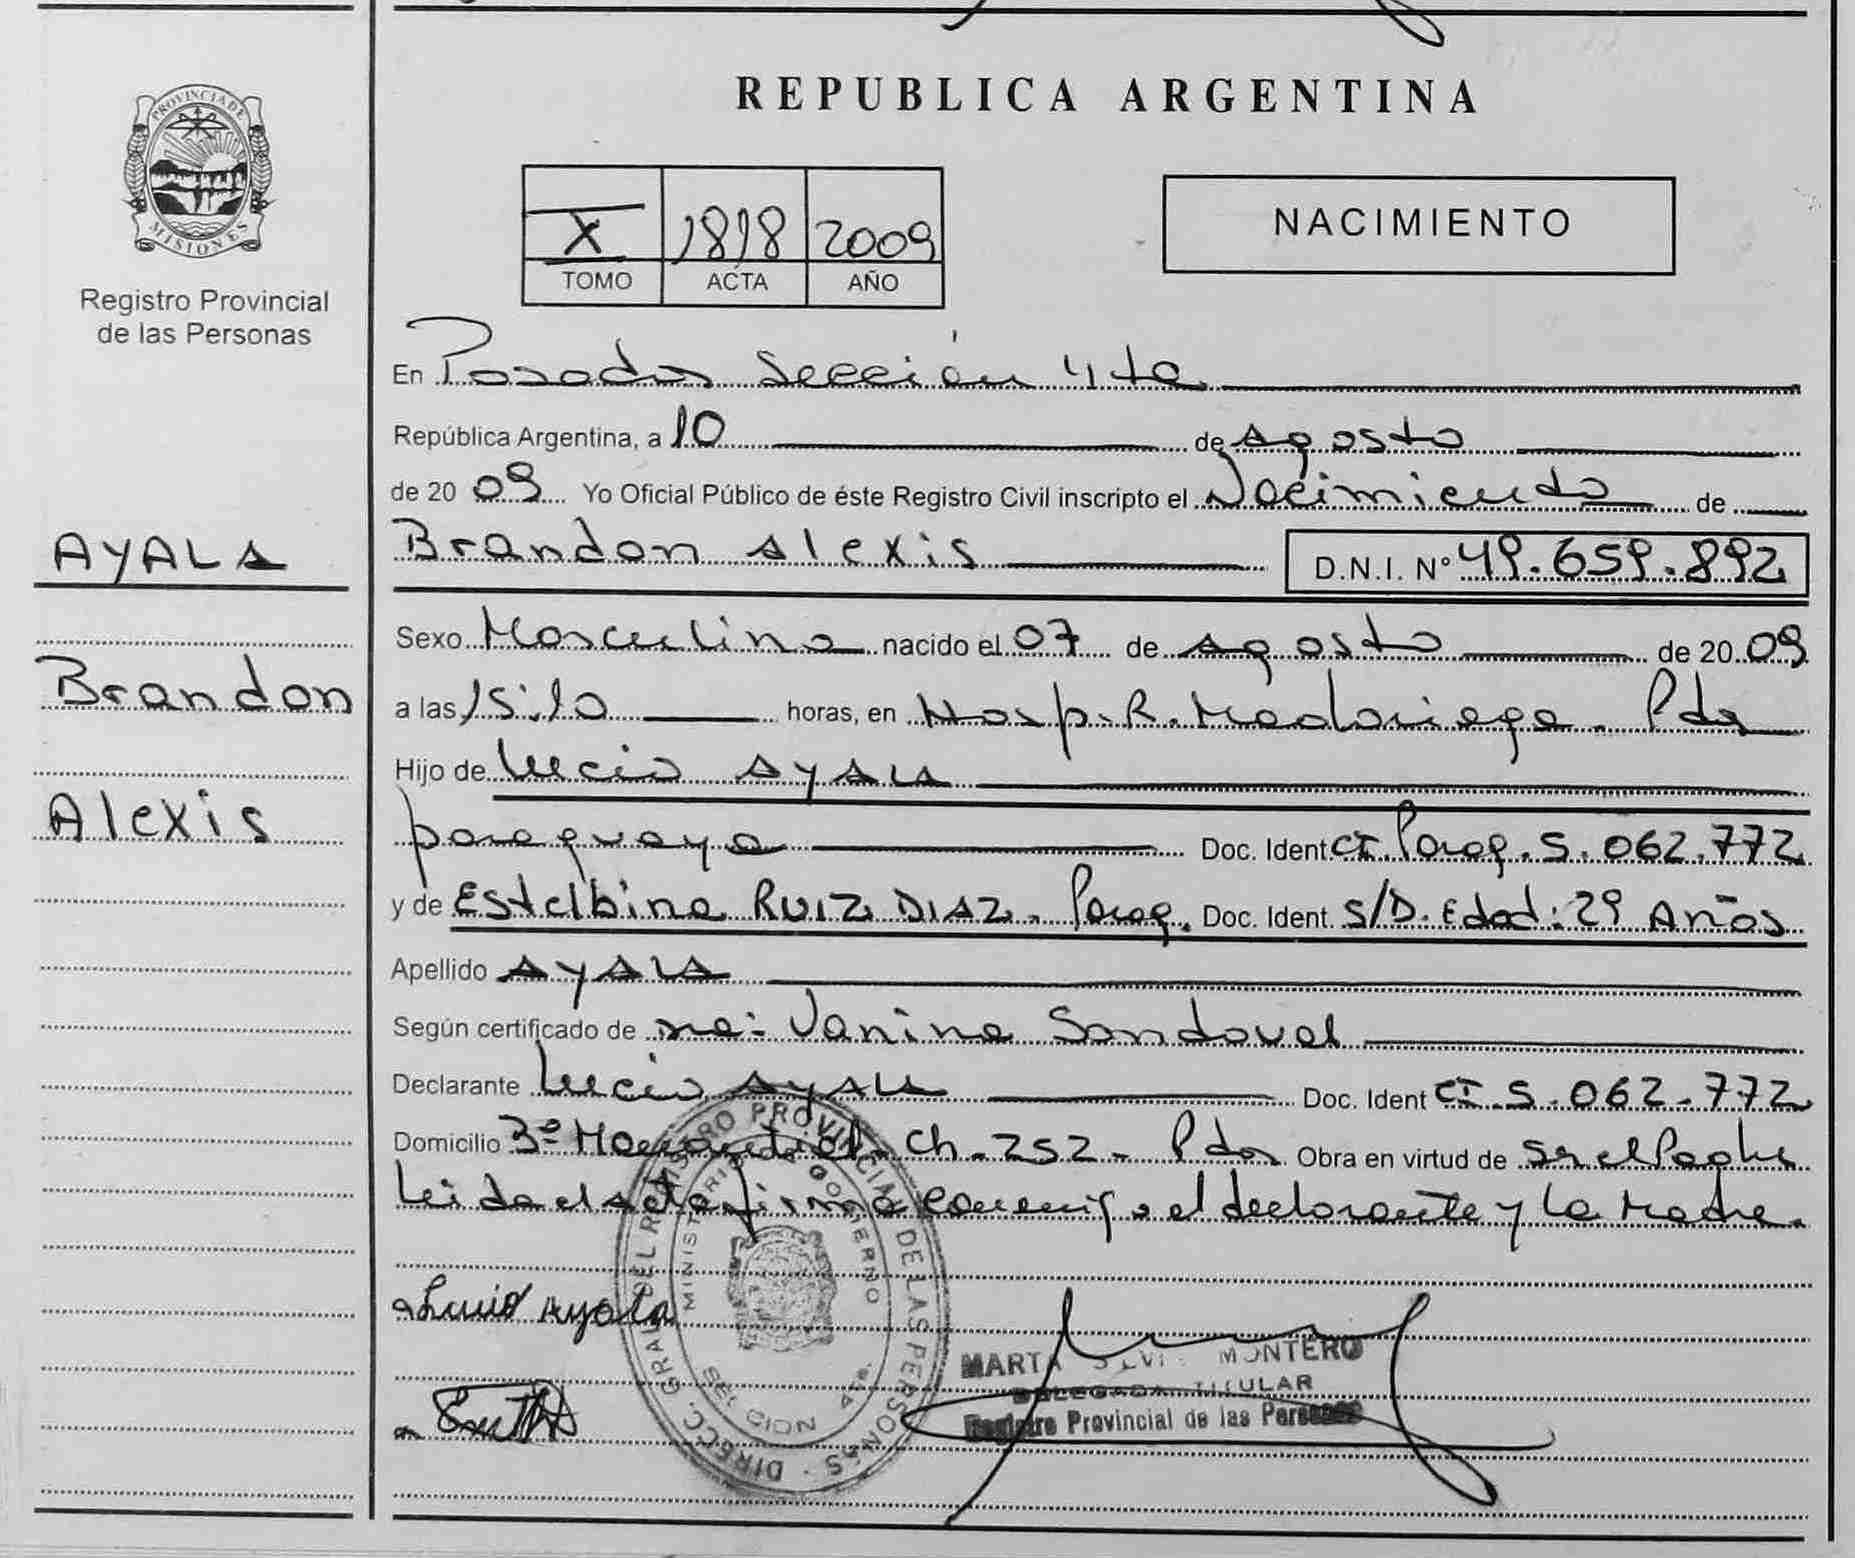 REPUBLICA ARGENTINA
PROVINCIA DE
MISIONES
Registro Provincial
de las Personas
X 1818 2009
TOMO ACTA AÑO
NACIMIENTO
En Posadas Sección 4ta
República Argentina, a 10 de Agosto
de 20 09 Yo Oficial Público de éste Registro Civil inscripto el Nacimiento de
AYALA
Brandon Alexis D.N.I. Nº 49.659.892
Sexo Masculino nacido el 07 de Agosto de 20 09
Brandon
a las 15:10 horas, en Hosp. R. Madariaga. Pdas
Hijo de Lucio AYALA
Alexis
paraguaya Doc. Ident CI Parag. 5.062.772
y de Estelbina RUIZ DIAZ. Parag. Doc. Ident. S/D. Edad: 29 Años
Apellido AYALA
Según certificado de Vanina Sandoval
Declarante Lucio AYALA Doc. Ident CI. 5.062.772
Domicilio Ch. 252. Pdas Obra en virtud de Ser el Padre
Leida el acta firma conmigo el declarante y la Madre.
DIRECC. GRAL DEL REGISTRO PROVINCIAL DE LAS PERSONAS
MINISTERIO DE GOBIERNO
Lucio Ayala
MARTA MONTERO
DELEGADA TITULAR
Registro Provincial de las Personas